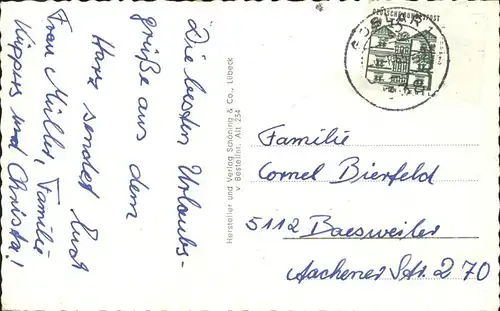 Die besten Urlaubs-
grüße aus dem
Harz sendet Euch
Frau Müller, Familie
Küppers und Christa!
Hersteller und Verlag Schöning & Co., Lübeck
v Bestellnr. Alt 234
DEUTSCHE BUNDESPOST
GOSLAR
Familie
Cornel Bierfeld
5112 Baesweiler
Aachener Str. 270